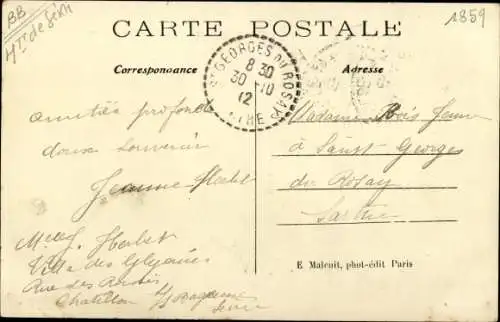 BB
1859
CARTE POSTALE
Correspondance
Adresse
St GEORGES DU ROSAY
8 30
30 - 10
12
SARTHE
amitiés profonde
doux souvenir
Jeanne Herbet
Madame Bois Jeune
à Saint Georges
du Rosay
Sarthe
Melle J. Herbet
Villa des Glycines
Rue des
Chatillon s/s Bagneux
Seine
E. Malcuit, phot-édit Paris